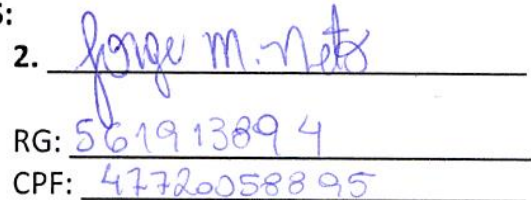 S:
2. Jorge M. Neto
RG: 561913894
CPF: 47720058895